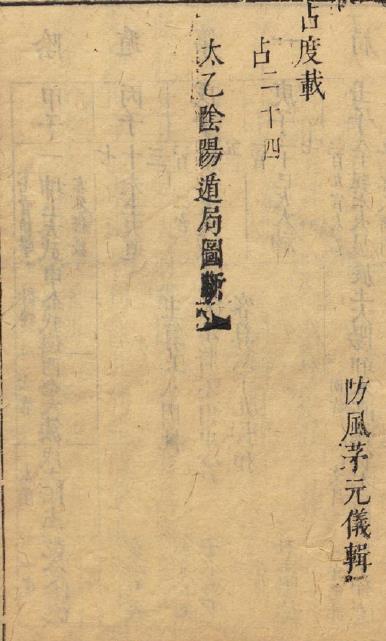 占度載
占二十四
太乙陰陽遁局圖
防風茅元儀輯